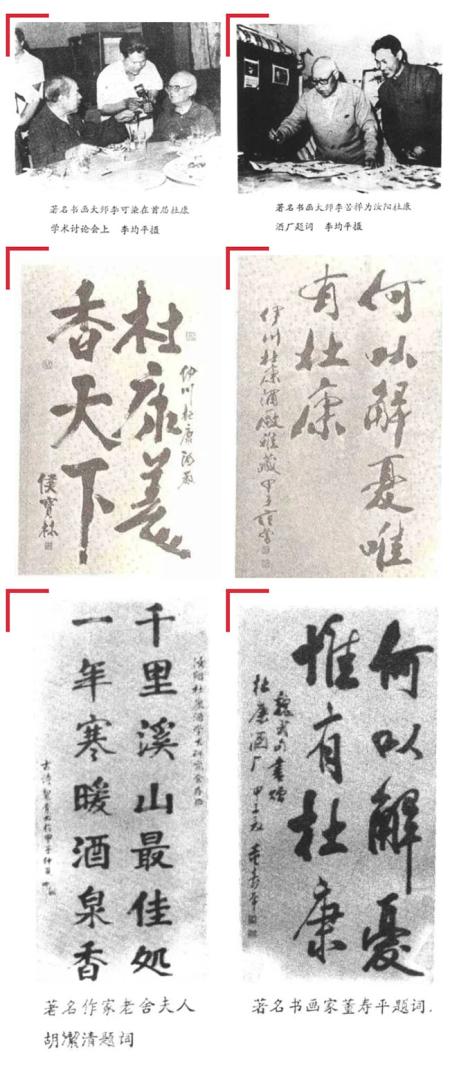 著名书画大师李可染在首届杜康
学术讨论会上 李均平摄
著名书画大师李苦禅为汝阳杜康
酒厂题词 李均平摄
伊川杜康酒廠
杜康美
香天下
侯寶林
何以解憂唯
有杜康
伊川杜康酒廠雅藏 甲子
千里溪山最佳处
一年寒暖酒泉香
何以解憂
惟有杜康
魏武句書贈
杜康酒厂 甲子 董寿平
著名作家老舍夫人
胡潔清题词
著名书画家董寿平题词.